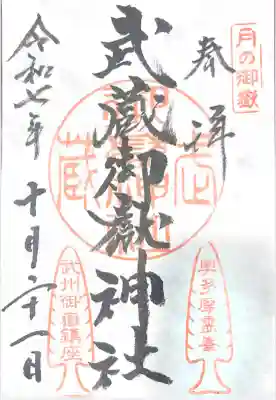 月の御嶽
奉拝
武蔵御嶽神社
令和七年
十月二十一日
武州御嶽鎮座
奥多摩霊峯